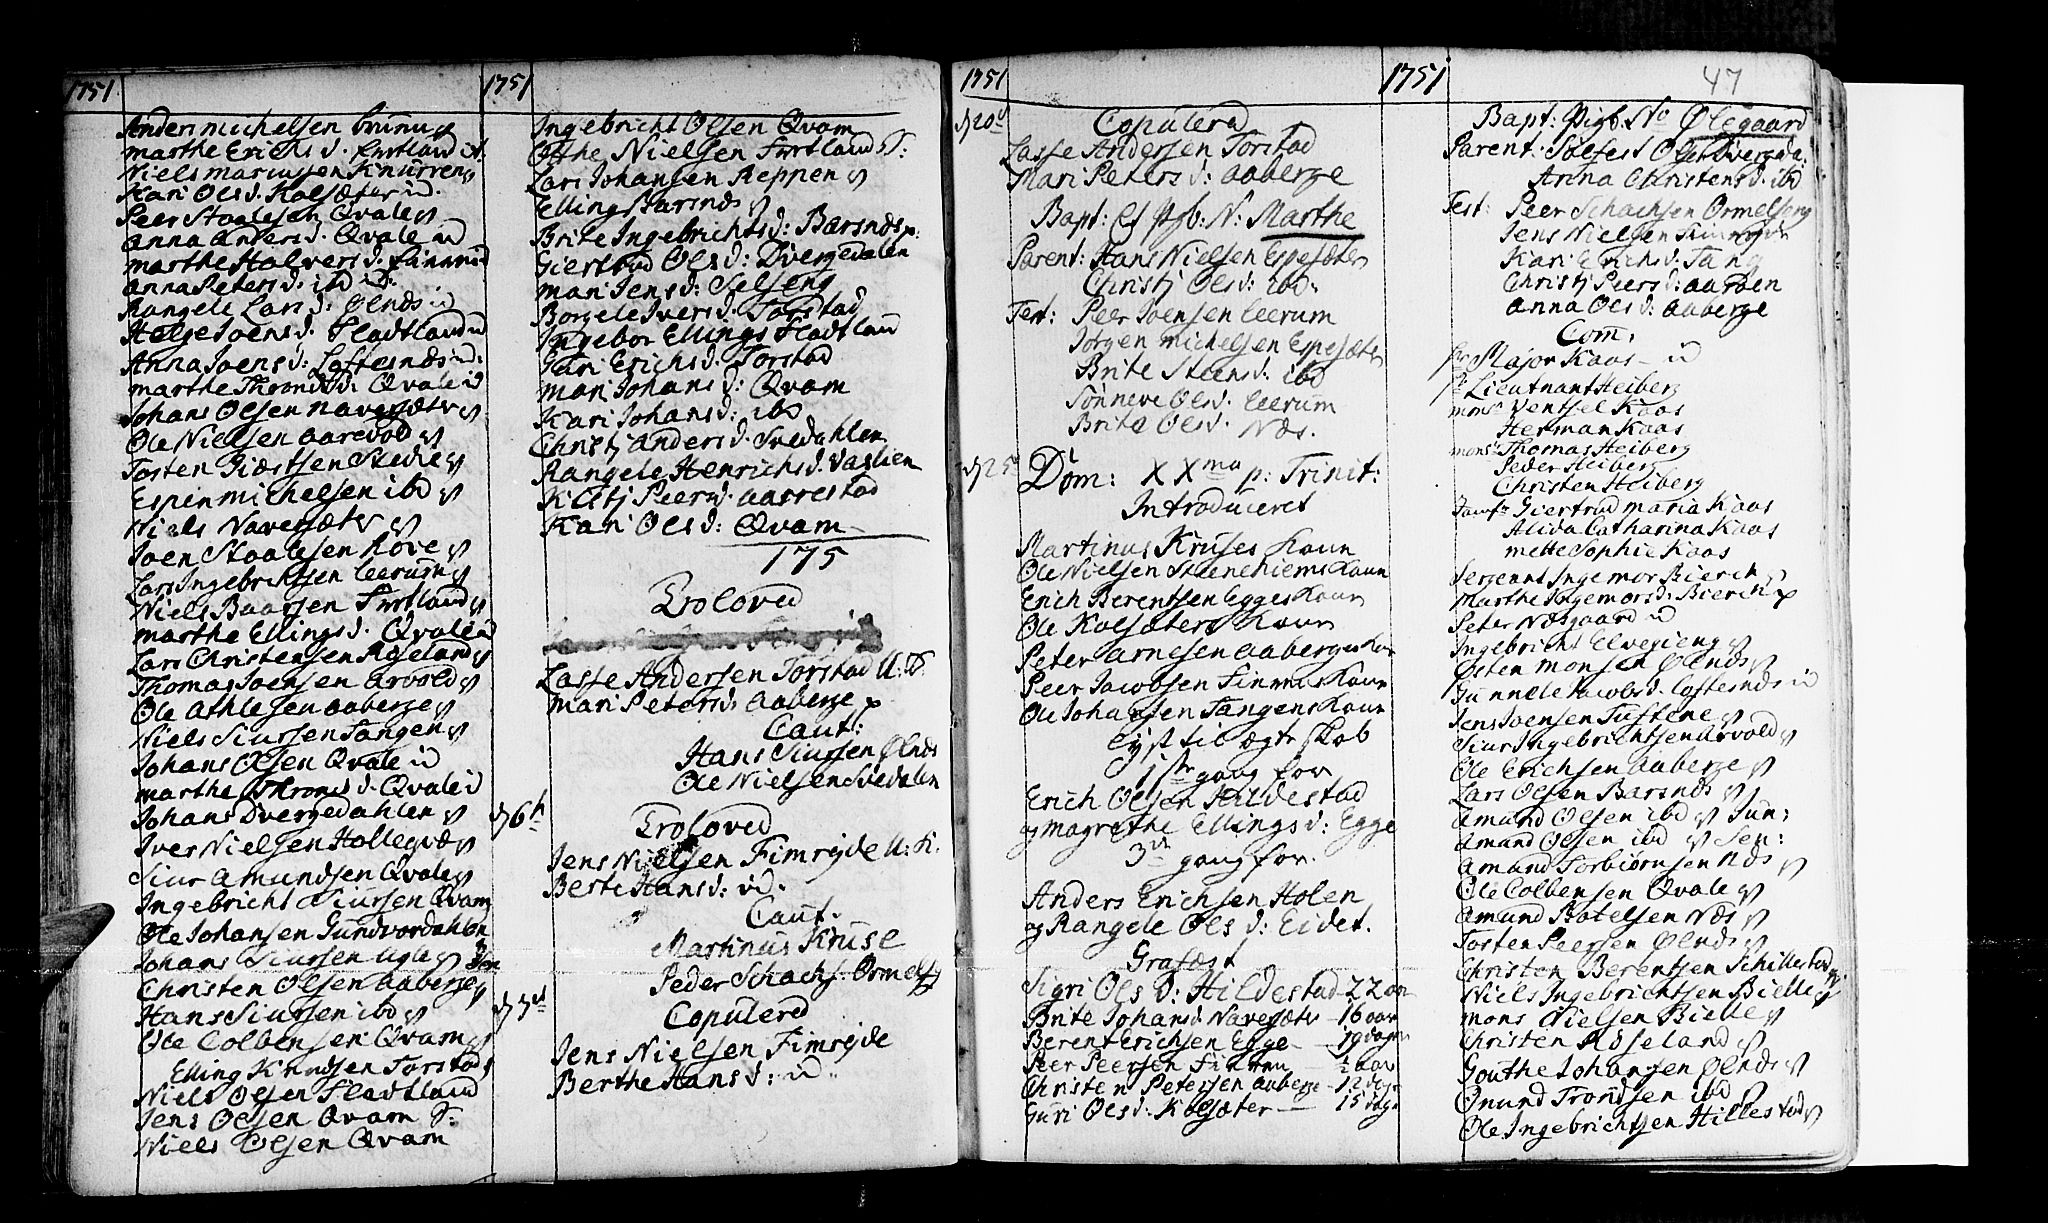 1751
Anders Michelsen
Marthe Erichsd.
Niels Knurren
Kari Olsd. Kolsæter id.
Peer Qvale
Anna Andersd. Qvale id
Marthe Halversd. id
Anna Petersd. ibd id.
Rangele Larsd: Ølnds id
Helge Joensd. Fladtland id
Anna Joensd: Loftesnds id:
Marthe Thronds d: Qvale id
Johans Olsen Naversæter
Ole Nielsen Aarevold
Tosten Giæstsen Stedie
Espen Michelsen ibd
Niels Naversæter
Joen Staalesen Rove
Lars Ingebrichtsen Leerum
Niels Baarsen
Marthe Ellingsd. Qvale id
Lars Christensen Røseland
Thomas Joensen Arvold
Ole Athlesen Aaberge
Niels Siursen Tangen
Johans Olsen Qvale id
Marthe Thronds d. Qvale id
Johans Dvergedahlen
Iver Nielsen Hollegvæ
Siur Amundsen Qvale
Ingebricht Siursen Qvam
Ole Johansen Gundvordahlen
Johans Siursen
Christen Olsen Aaberge
Hans Siursen ibd
Ole Colbensen Qvam
Elling Knudsen Torstad
Niels Olsen Fladtland
Jens Olsen Qvam S:
Niels Olsen Qvam
1751
Ingebricht Olsen Qvam
Othe Nielsen
Lars Johansen Reppen
Elling Barsnds
Brite Ingebrichtsd: Barsnds
Giertrud Olsd: Dvergedalen
Mari Jensd: Selseng
Borgele Iversd: Torstad
Ingebor Ellings Fladtland
Guri Erichsd. Torstad
Mari Johansd: Qvam
Kari Johansd: ibd
Christj Andersd. Svedahlen
Rangele Henrichsd. Vastien
Kistj Peersd. Aarrestad
Kari Olsd: Qvam
175
Troloved
Lasse Andersen Torstad U. K.
Mari Petersd: Aaberge
Caut:
Hans Siursen Ølnds
Ole Nielsen Svedalen
d 6t
Troloved
Jens Nielsen Fimreyde U. K.
Berte Hansd: id.
Caut.
Martinus Kruse
Peder Schachs: Ormels
Copulered
Jens Nielsen Fimreyde
Berthe Hansd: id.
1751
d 20d
Copulerd
Lasse Andersen Torstad
Mari Petersd: Aaberge
Bapt: N: Marthe
Parent: Hans Nielsen Eppesæter
Christj Olsd: ibd.
Test: Peer Joensen Leerum
Jorgen Michelsen Eppesæter
Brite Steensd: ibd
Sønneve Olsd. Leerum
Brite Olsd. Næs.
Dom: XXma p: Trinit:
Introduceret
Martinus Kruses Kaun
Ole Nielsen Steenehiems Kaun
Erich Berentsen Egges Kaun
Ole Kolsæters Kaun
Peter Arnesen Aaberges Kaun
Peer Jacobsen Finnes Kaun
Ole Johansen Tangens Kaun
Lyst til ægteskab
1ste gang for
Erich Olsen Hildestad
og Magrethe Ellingsd: Egge
3die gang for.
Anders Erichsen Holen
og Rangele Olsd: Eidet.
Grafæst
Sigri Olsd: Hildestad 22 aar
Brite Johansd Naversæter 16 aar
Berent Erichsen Egge 19 dager
Peer Peersen Finnen ½ aar
Christen Petersen Aaberge 12 dager
Guri Olsd. Kolsæter 15 dager
1751
47
Bapt: No Ølegaard
Parent: Solfest Olsen Dvergda:
Anna Christensd. ibd
Test: Peer Schachsen Ormelseng
Jens Nielsen Fimreyde
Kari Erichsd: Tang
Christj Peersd: Aarøen
Anna Olsd: Aaberge
Com.
Major Kaas id
Lieutnant Heiberg
Ventsel Kaas
Herman Kaas
Thomas Heiberg
Peder Heiberg
Christen Heiberg
Giertrud Maria Kaas
Alida Catharina Kaas
Mette Sophie Kaas
Sergeant Ingemor Bierch
Marthe Ingemorsd: Bierch
Peter Næsgaard id
Ingebricht Elvegieng
Østen Monsen Ølnds
Gunnele Jacobsd. Loftesnds id
Jens Joensen Tuftene
Siur Ingebrichtsen Arvold
Ole Erichsen Aaberge
Lars Olsen Barsnds
Amund Olsen ibd Jun:
Amund Olsen ibd Sen:
Amund Torbiørnsen Nds
Ole Colbensen Qvale
Amund Botelsen Næs
Tosten Peersen Ølnds
Christen Berentsen Schillestad
Niels Ingebrichtsen Bielle
Mons Nielsen Bielle
Christen Røseland
Gouthe Johansen Ølnds
Onund Trondsen ibd
Ole Ingebrichtsen Hillestad